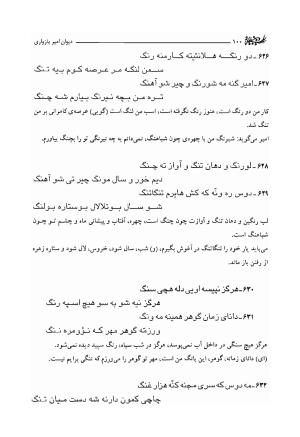 دیوان امیر پازواری
۱۰۰
۶۲۶- دو رنگه هلانشیته کارمنه رنگ
سمن لنگه مر عرصه کوم بیه تنگ
۶۲۷- امیر گنه مه شورنگ و چیر شو آهنگ
تره من بچه نیرنگ بیارم شه چنگ
کار من دو رنگی است، هنوز رنگ نگرفته است، اسب من لنگ است (گویی) عرصه‌ی کامرانی بر من
تنگ شد.
امیر می‌گوید: شبرنگ من با چهره‌ی چون شباهنگ، نمی‌دانم به چه نیرنگی تو را بچنگ بیاورم.
۶۲۸- لورنگ و دهان تنگ و آواز ته چنگ
دیم خور و سال مونگ چیر تی شو آهنگ
۶۲۹- دوس ره ونه که کش هایرم تنگاتنگ
شو سال بوتلالال بوستاره بولنگ
لب رنگین و دهان تنگ و آوازت چون چنگ است، چهره، آفتاب و پیشانی ماه و چشم تو چون
شباهنگ است.
می‌باید یار خود را تنگاتنگ در آغوش بگیرم، (و) شب، سال شود، خروس، لال شود و ستاره زهره
از رفتن باز ماند.
۶۳۰- هرگز نییسه اویی دله هچی سنگ
هرگز نیه شو به سو هیچ اسپه رنگ
۶۳۱- دانای زمان گوهر همینه مه ونگ
ورزته گوهر مهر که نؤومزه ننگ
هرگز سنگی در داخل هیچ آب نمی‌پوسد، هرگز در شب سیاه، رنگ سپید دیده نمی‌شود.
(ای) دانای زمانه، گوهر، این بانگ من است، مهر تو گوهر را می‌ورزم که ننگی برایم نیست.
۶۳۲- مه دوس که سری مجنه کنه هزار غنگ
چاچی کمون دارنه شه دست میان تنگ